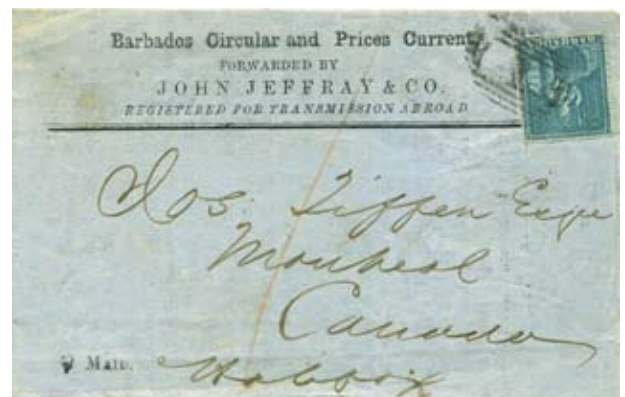 Barbados Circular and Prices Current
FORWARDED BY
JOHN JEFFRAY & CO.
REGISTERED FOR TRANSMISSION ABROAD
Jos. Tiffen Esqr
Montreal
Canada
Halifax